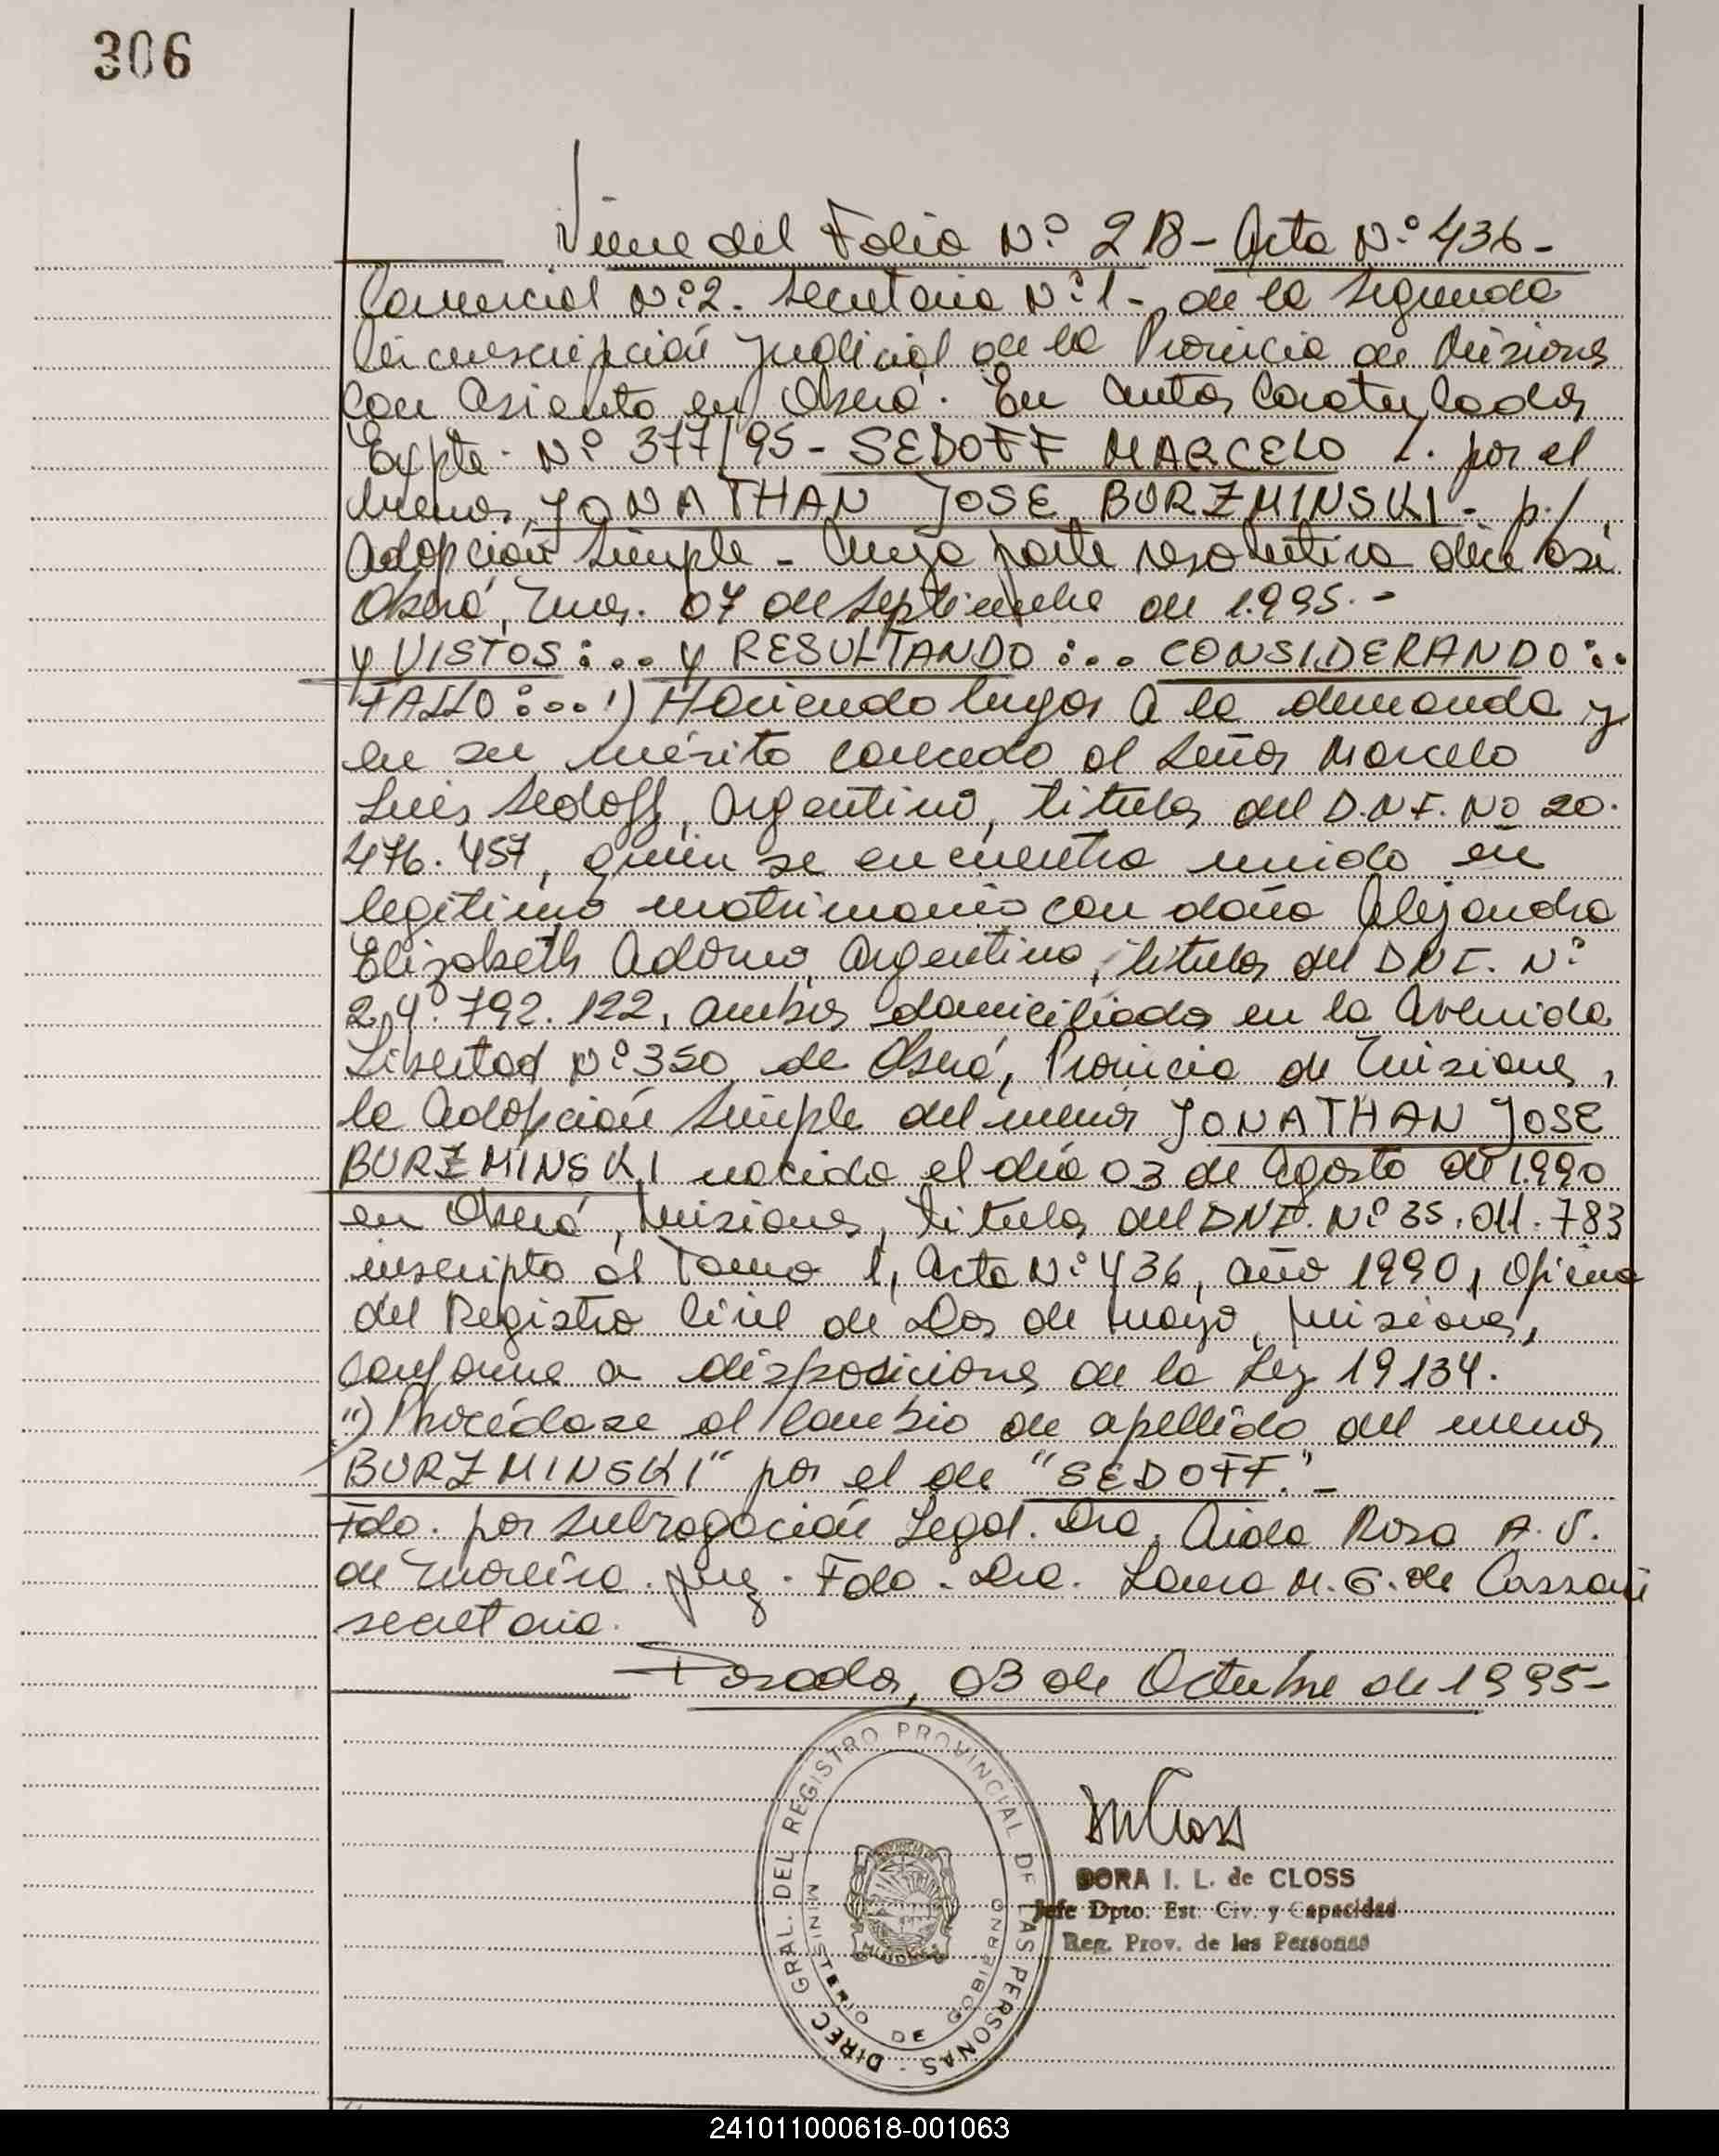 306
Viene del Folio Nº 218 - Acta Nº 436 -
Comercial Nº 2. Secretaria Nº 1 - de la Segunda
Circunscripción Judicial de la Provincia de Misiones
con asiento en Oberá. En autos caratulados
Expte. Nº 377/95 - SEDOFF MARCELO L. por el
menor JONATHAN JOSE BURZMINSKI - p./
Adopción Simple - Cuya parte resolutiva dice así
Oberá, Mnes. 07 de Septiembre de 1.995. -
y VISTOS:... y RESULTANDO:... CONSIDERANDO:..
FALLO:...I) Haciendo lugar a la demanda y
en su mérito concedo al Señor Marcelo
Luis Sedoff, Argentino, titular del D.N.I. Nº 20.
476.457, quien se encuentra unido en
legítimo matrimonio con doña Alejandra
Elizabeth Adorno, Argentina, titular del DNI. Nº
24.792.122, ambos domiciliados en la Avenida
Libertad Nº 350 de Oberá, Provincia de Misiones,
la Adopción Simple del menor JONATHAN JOSE
BURZMINSKI nacido el día 03 de Agosto de 1.990
en Oberá, Misiones, titular del DNI. Nº 35.011.783
inscripto al Tomo 1, Acta Nº 436, año 1990, Oficina
del Registro Civil de Dos de Mayo, Misiones,
conforme a disposiciones de la Ley 19134.
II) Procédase al cambio de apellido del menor
BURZMINSKI" por el de "SEDOFF." -
Fdo. por Subrogación Legal. Dra. Aida Rosa A. V.
de Moreira. Juez. Fdo. Dra. Laura M. G. de Cassani
secretaria.
Posadas, 03 de Octubre de 1995 -
DIREC. GRAL. DEL REGISTRO PROVINCIAL DE LAS PERSONAS -
MINISTERIO DE GOBIERNO
MISIONES
DORA I. L. de CLOSS
Jefe Dpto. Est. Civ. y Capacidad
Reg. Prov. de las Personas
241011000618-001063